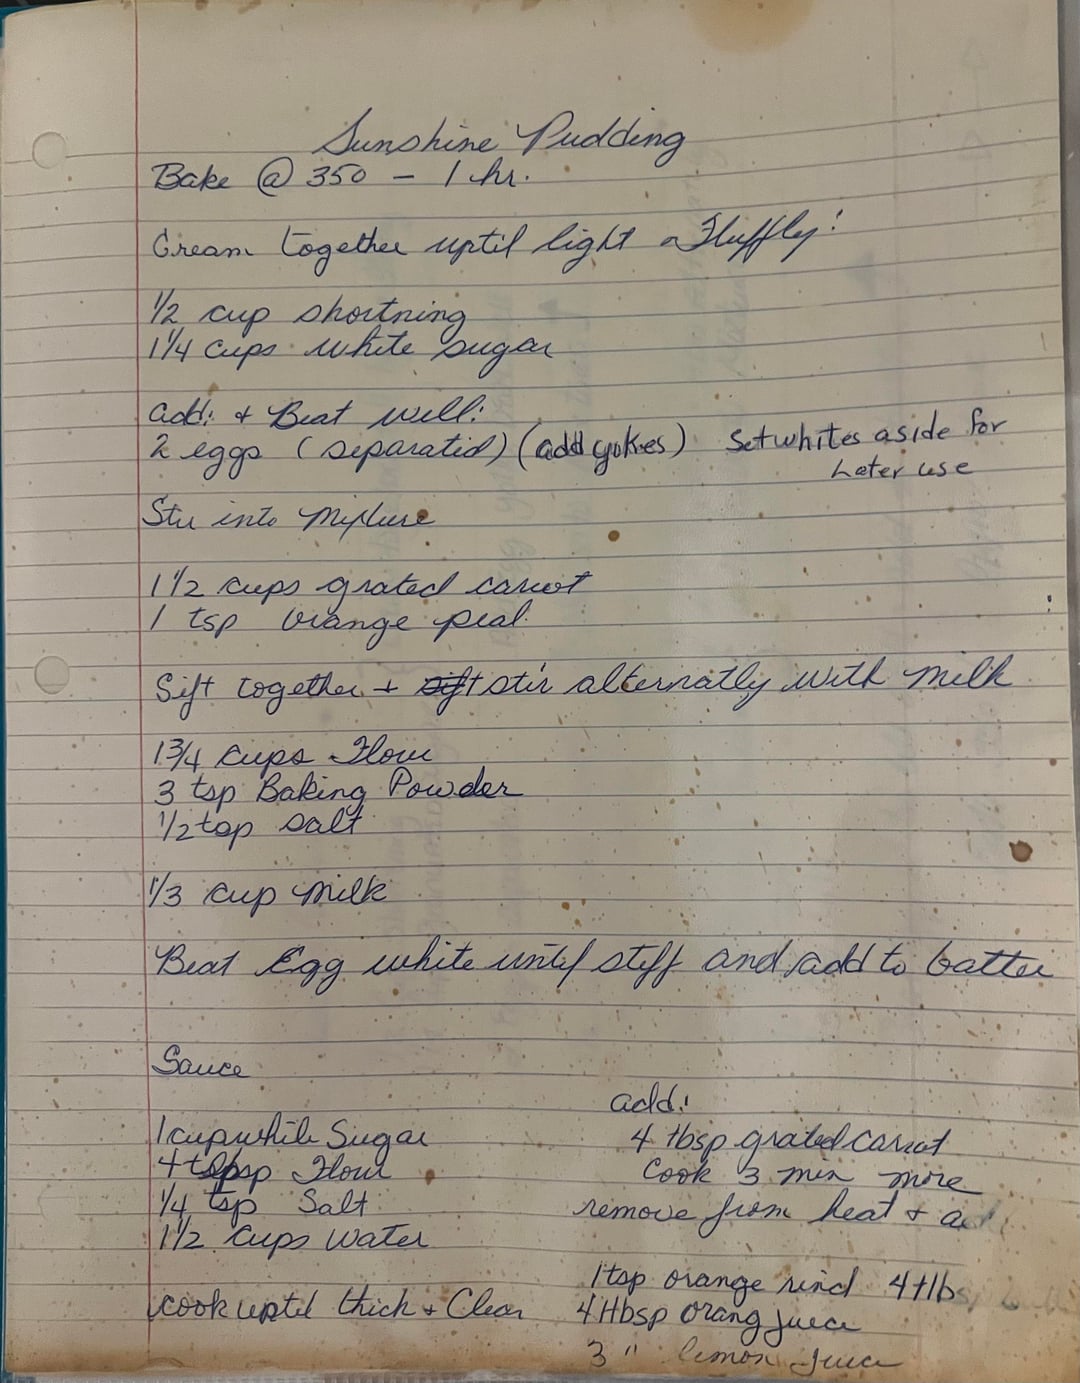 Sunshine Pudding
Bake @ 350 - 1 hr.
Cream together uptil light & Fluffly!
1/2 cup shortning
1 1/4 cups white sugar
add: & Beat well:
2 eggs (separated) (add yokes) Set whites aside for
Later use
Stir into Mixture
1 1/2 cups grated carrot
1 tsp orange peal
Sift together + stir alternatly with Milk
1 3/4 cups Flour
3 tsp Baking Powder
1/2 tsp salt
1/3 cup Milk
Beat Egg white until stiff and add to batter
Sauce
1 cup white Sugar
4 tbsp Flour
1/4 tsp Salt
1 1/2 cups water
cook uptil thick + Clear
add:
4 tbsp grated carrot
Cook 3 min more
remove from heat + add
1 tsp orange rind 4 tlbs
4 tbsp orang juice
3 " lemon juice